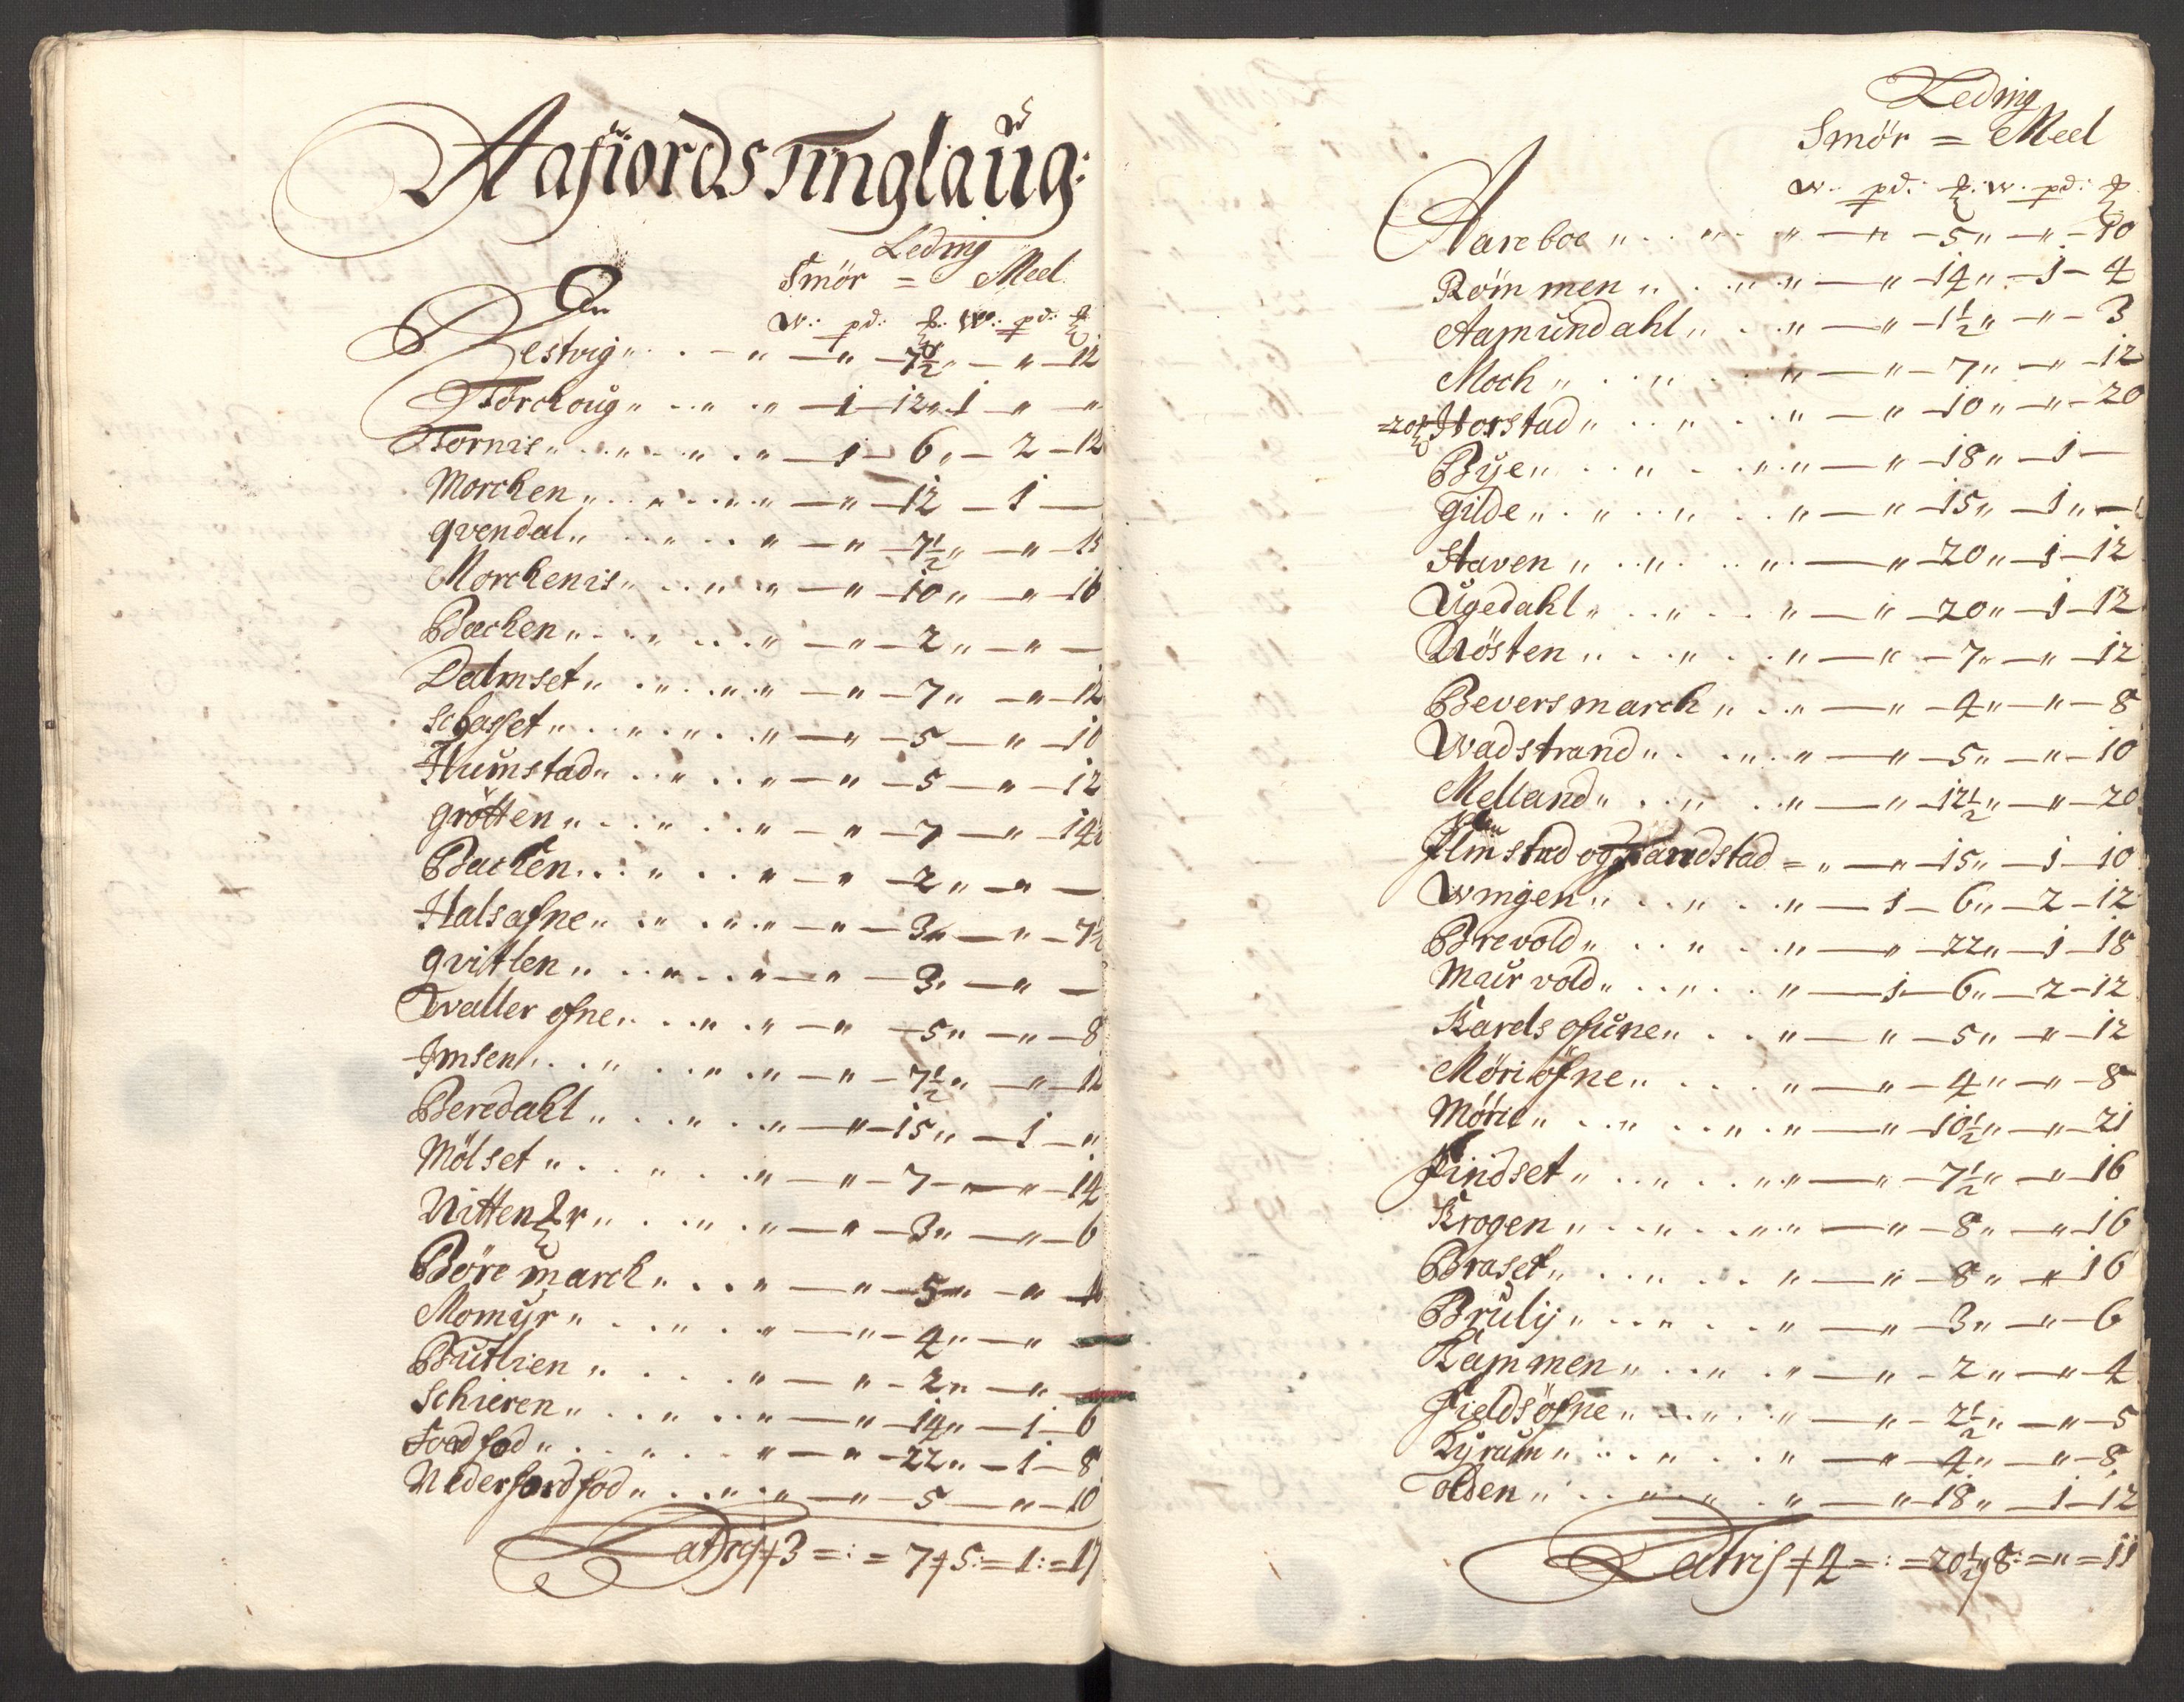 Aafiords Tinglaug:
Leding
Smör = Meel
w: pd: w: pd:
Restvig " . . - " — " — 7½ " — " — 12
Törchoug " . . " . " — 1 — 12 " 1 — " — "
Tornis " . . " . . " . " — 1 — 6 " — 2 — 12
Morchen " . . " . . " . " — " — 12 — 1 —
qvendal " . . " . . " — " — 7½ " — " — 15
Morchenis " . . " . " — " — 10 " — " — 16
Bachen " . . " . . . " — " — 2 " — " —
Dalmset " . " . . " . " — " — 7 " — " — 12
Schasset " . . " . " . . " — " — 5 — " — 10
Humstad " . . " . . " — " — 5 — " — 12
grötten " . . " . . " — " — 7 — " — 14
Bachen . . : " . . " — " — 2 " — " —
Halsafne " . " . " . " — " — 3 " — " — 7½
qvitlen " . . " . . " — " — 3 " — " —
Dvaller ofne " . . " . " — " — 5 " — " — 8
Imsen " . . " . . " . " — " — 7½ " — " — 12
Beredahl " . . " . . " — " — 15 " — 1 — "
Mölset " . . " . . " — " — 7 — " — 14
Nitten r " . . " . " — " — 3 " — " — 6
Böre march " . . " — " — 5 " — "
Momyr " . . " . . " — " — 4 " — "
Butlien " . . . " — " — 2 " — "
Schieren " . . " . . " — " — 14 " — 1 — 6
Fordfod " . . " . . " — " — 22 " — 1 — 8
Nederfordfod " . . " . " — " — 5 — " — 10
Latris 3 = : = 7 5 : = 1 : = 17
Leding
Smör = Meel
w. pd: w. pd:
Aareboe " . . " . " — " — 5 " — " — 10
Römmen " . . " " — " — 14 " — 1 — 4
Aamundahl " . . " — " — 1½ " — " — 3
Moch " . . " . . " — " — 7 " — " — 12
Horstad " . . " . . " — " — 10 " — " — 20
Bye " . . " . . " . " — " — 18 " — 1 —
gilde " . " . . " . . " — " — 15 " — 1 " —
Staven " . . " . . " — " — 20 " — 1 — 12
Ugedahl " . . " . . " — " — 20 " — 1 — 12
Nösten " . . " . . " — " — 7 " — " — 12
Beversmarch " . . " — " — 4 " — " — 8
Wadstrand " . . " . " — " — 5 " — " — 10
Melland " . . " . . " — " — 12½ " — " — 20
Ilmstad og Handstad = " — " — 15 " — 1 — 10
Wingen " . . " . . " — 1 — 6 " — 2 — 12
Brevold " . . " . . " — " — 22 " — 1 — 18
Maurvold " . . " . . " — 1 — 6 " — 2 — 12
Karels ofune " . . " — " — 5 " — " — 12
Möriöfne " . . . " — " — 4 " — " — 8
Mörie " . . " . . " . " — " — 10½ " — " — 21
Findset " . . " . . " " — " — 7½ " — " — 16
Krogen " . . " . . " . " — " — 8 " — " — 16
Braset " . . " . . " — " — 8 " — " 16
Brulij " . . " . . " — " — 3 " — " — 6
Kammen " . . " . " — " — 2 " — " — 4
Fieldsöfne " . . " . " — " — 2½ " — " — 5
Kyrum " . . " . . " — " — 4 " — " — 8
olden " . . " . " . " — " — 18 " — 1 — 12
Latris 2 = : = 20½ 8 : = " = 11